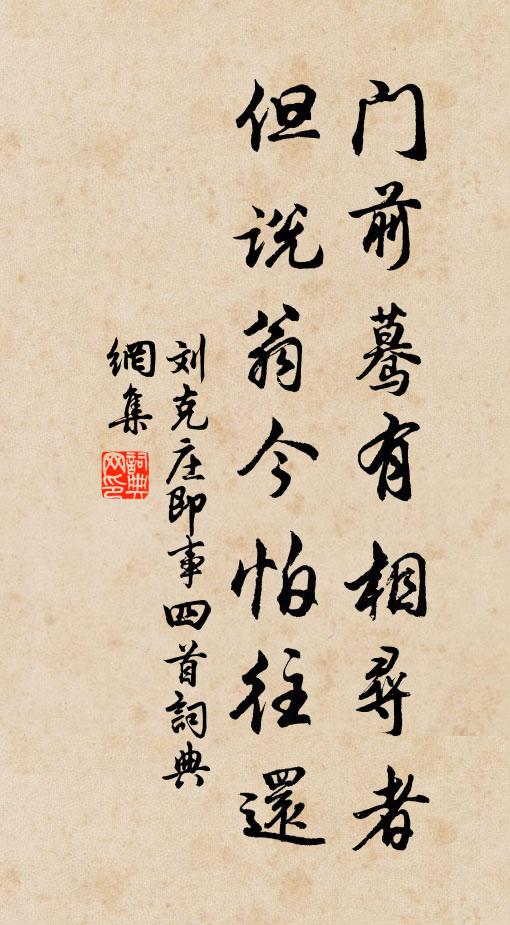 门前驀有相尋者
但说翁今怕往還
刘克庄即事四首詞典
網集
詞典
网印